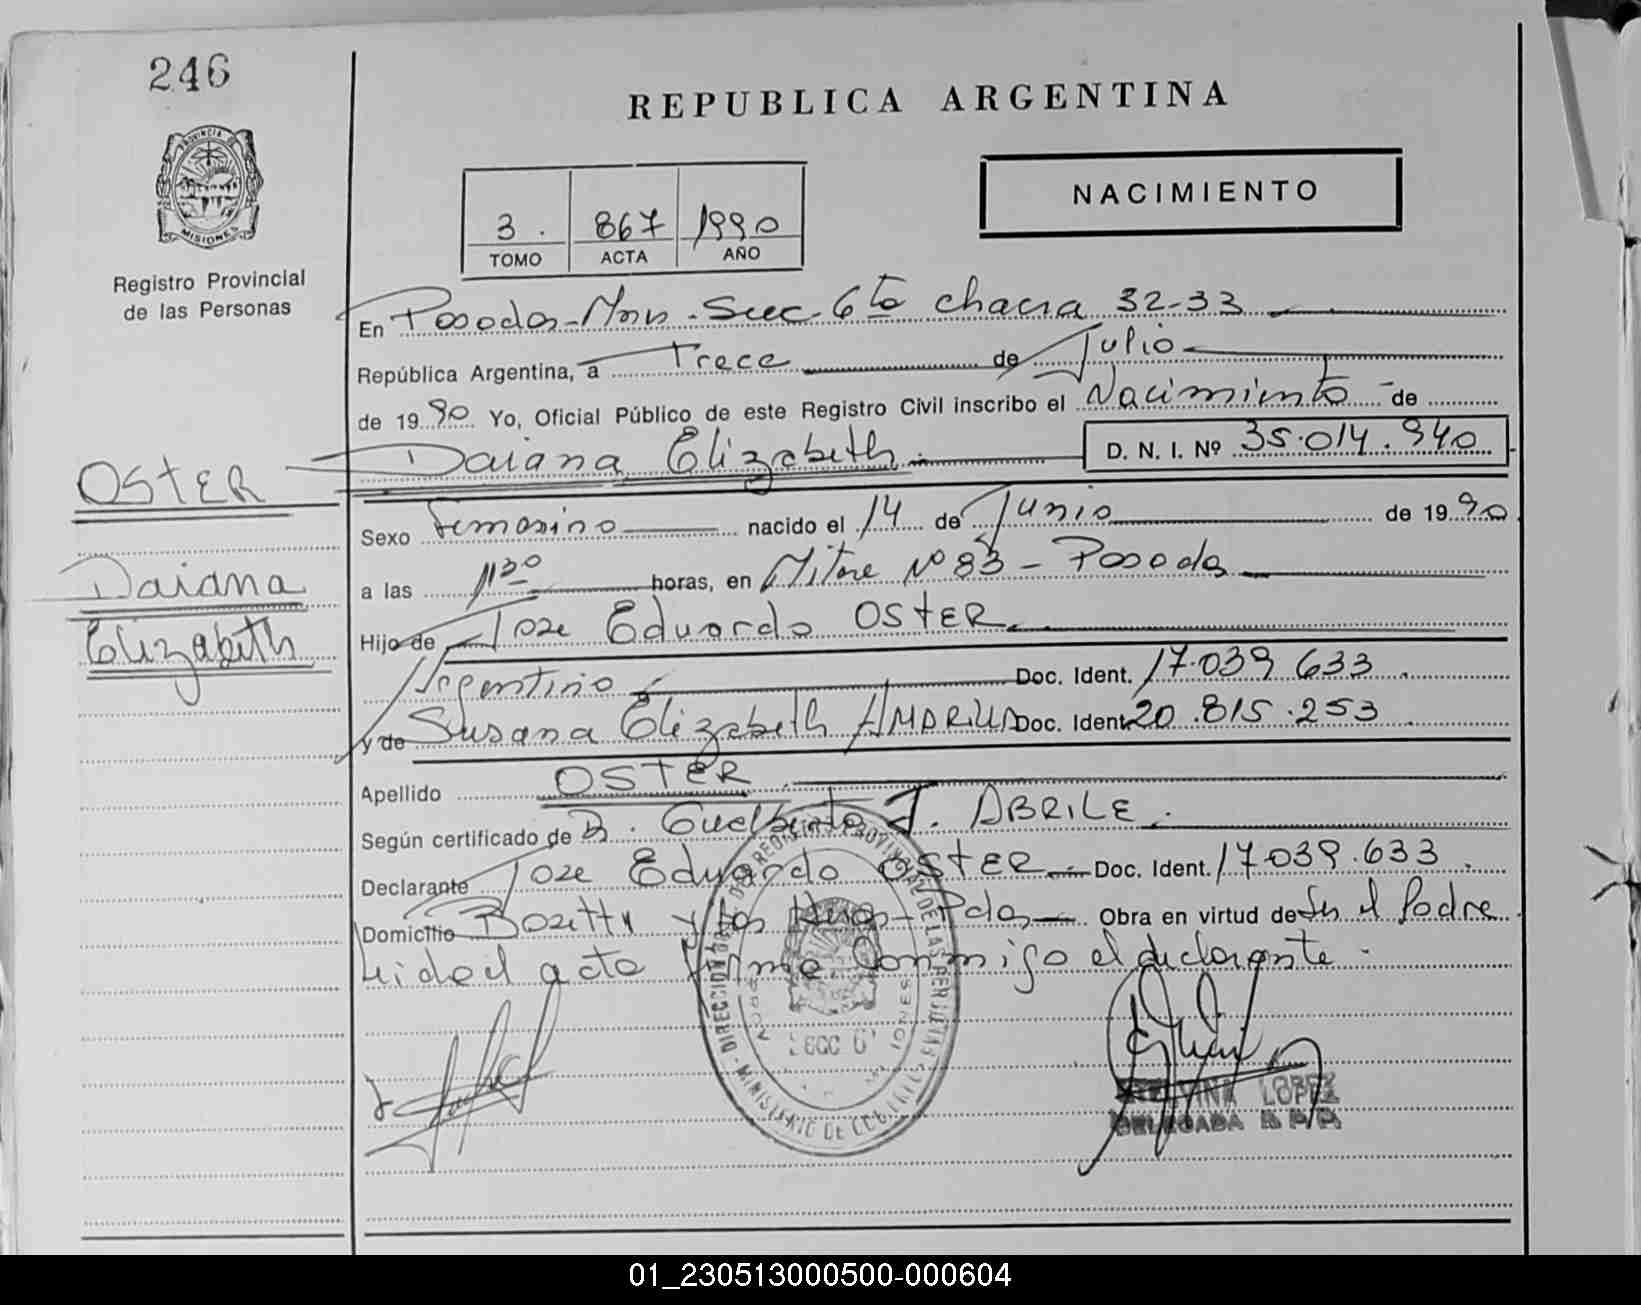 246
REPUBLICA ARGENTINA
PROVINCIA DE
MISIONES
Registro Provincial
de las Personas
3. 867 1990
TOMO ACTA AÑO
NACIMIENTO
En Posadas-Mnes-Secc-6ta chacra 32-33
República Argentina, a Trece de Julio
de 1990 Yo, Oficial Público de este Registro Civil inscribo el Nacimiento de
Daiana Elizabeth D. N. I. Nº 35.014.940
OSTER
Daiana
Elizabeth
Sexo Femenino nacido el 14 de Junio de 1990
a las 1130 horas, en Mitre Nº 83 - Posadas
Hijo de Jose Eduardo OSTER
Argentino Doc. Ident. 17.039.633
y de Susana Elizabeth AMARILLA Doc. Ident. 20.815.253
Apellido OSTER
Según certificado de Dr. Gualberto J. ABRILE.
Declarante Jose Eduardo OSTER Doc. Ident. 17.039.633
Domicilio y Pdas Obra en virtud de Ser el Padre
Leida el acta Firma Conmigo el declarante.
DIRECCION DEL REGISTRO PROVINCIAL DE LAS PERSONAS
MINISTERIO DE GOBIERNO
SECC 6
LOPEZ
DELEGADA R.P.P.
01_230513000500-000604